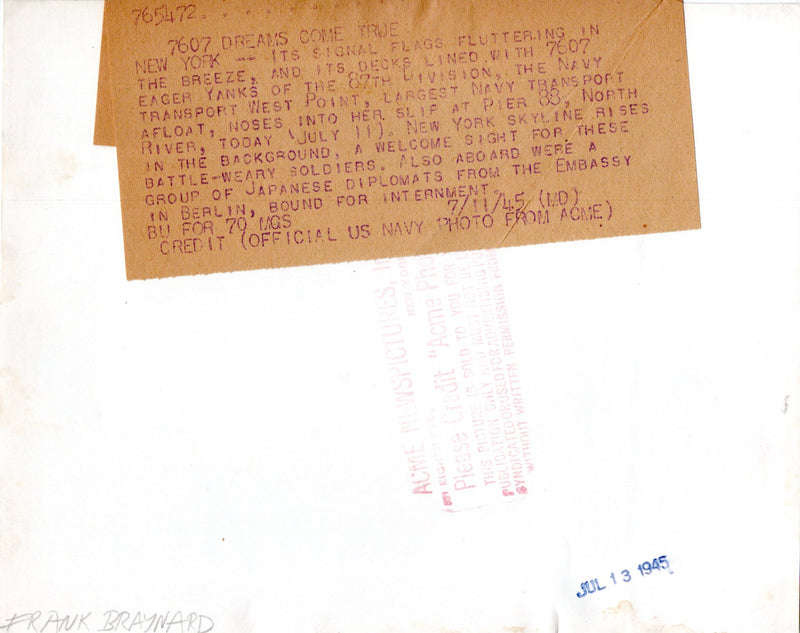 765472. . . . . . . .
7607 DREAMS COME TRUE
NEW YORK -- ITS SIGNAL FLAGS FLUTTERING IN
THE BREEZE, AND ITS DECKS LINED WITH 7607
EAGER YANKS OF THE 87TH DIVISION, THE NAVY
TRANSPORT WEST POINT, LARGEST NAVY TRANSPORT
AFLOAT, NOSES INTO HER SLIP AT PIER 88, NORTH
RIVER, TODAY (JULY 11). NEW YORK SKYLINE RISES
IN THE BACKGROUND, A WELCOME SIGHT FOR THESE
BATTLE-WEARY SOLDIERS. ALSO ABOARD WERE A
GROUP OF JAPANESE DIPLOMATS FROM THE EMBASSY
IN BERLIN, BOUND FOR INTERNMENT.
BU FOR 70 MGS 7/11/45 (MD)
CREDIT (OFFICIAL US NAVY PHOTO FROM ACME)
ACME NEWSPICTURES, I
NEW YORK
Please Credit "Acme Pho
THIS PICTURE IS SOLD TO YOU FOR
PUBLICATION ONLY AND MUST NOT BE
SYNDICATED OR USED FOR ADVERTISING
WITHOUT WRITTEN PERMISSION FROM
JUL 13 1945
FRANK BRAYNARD